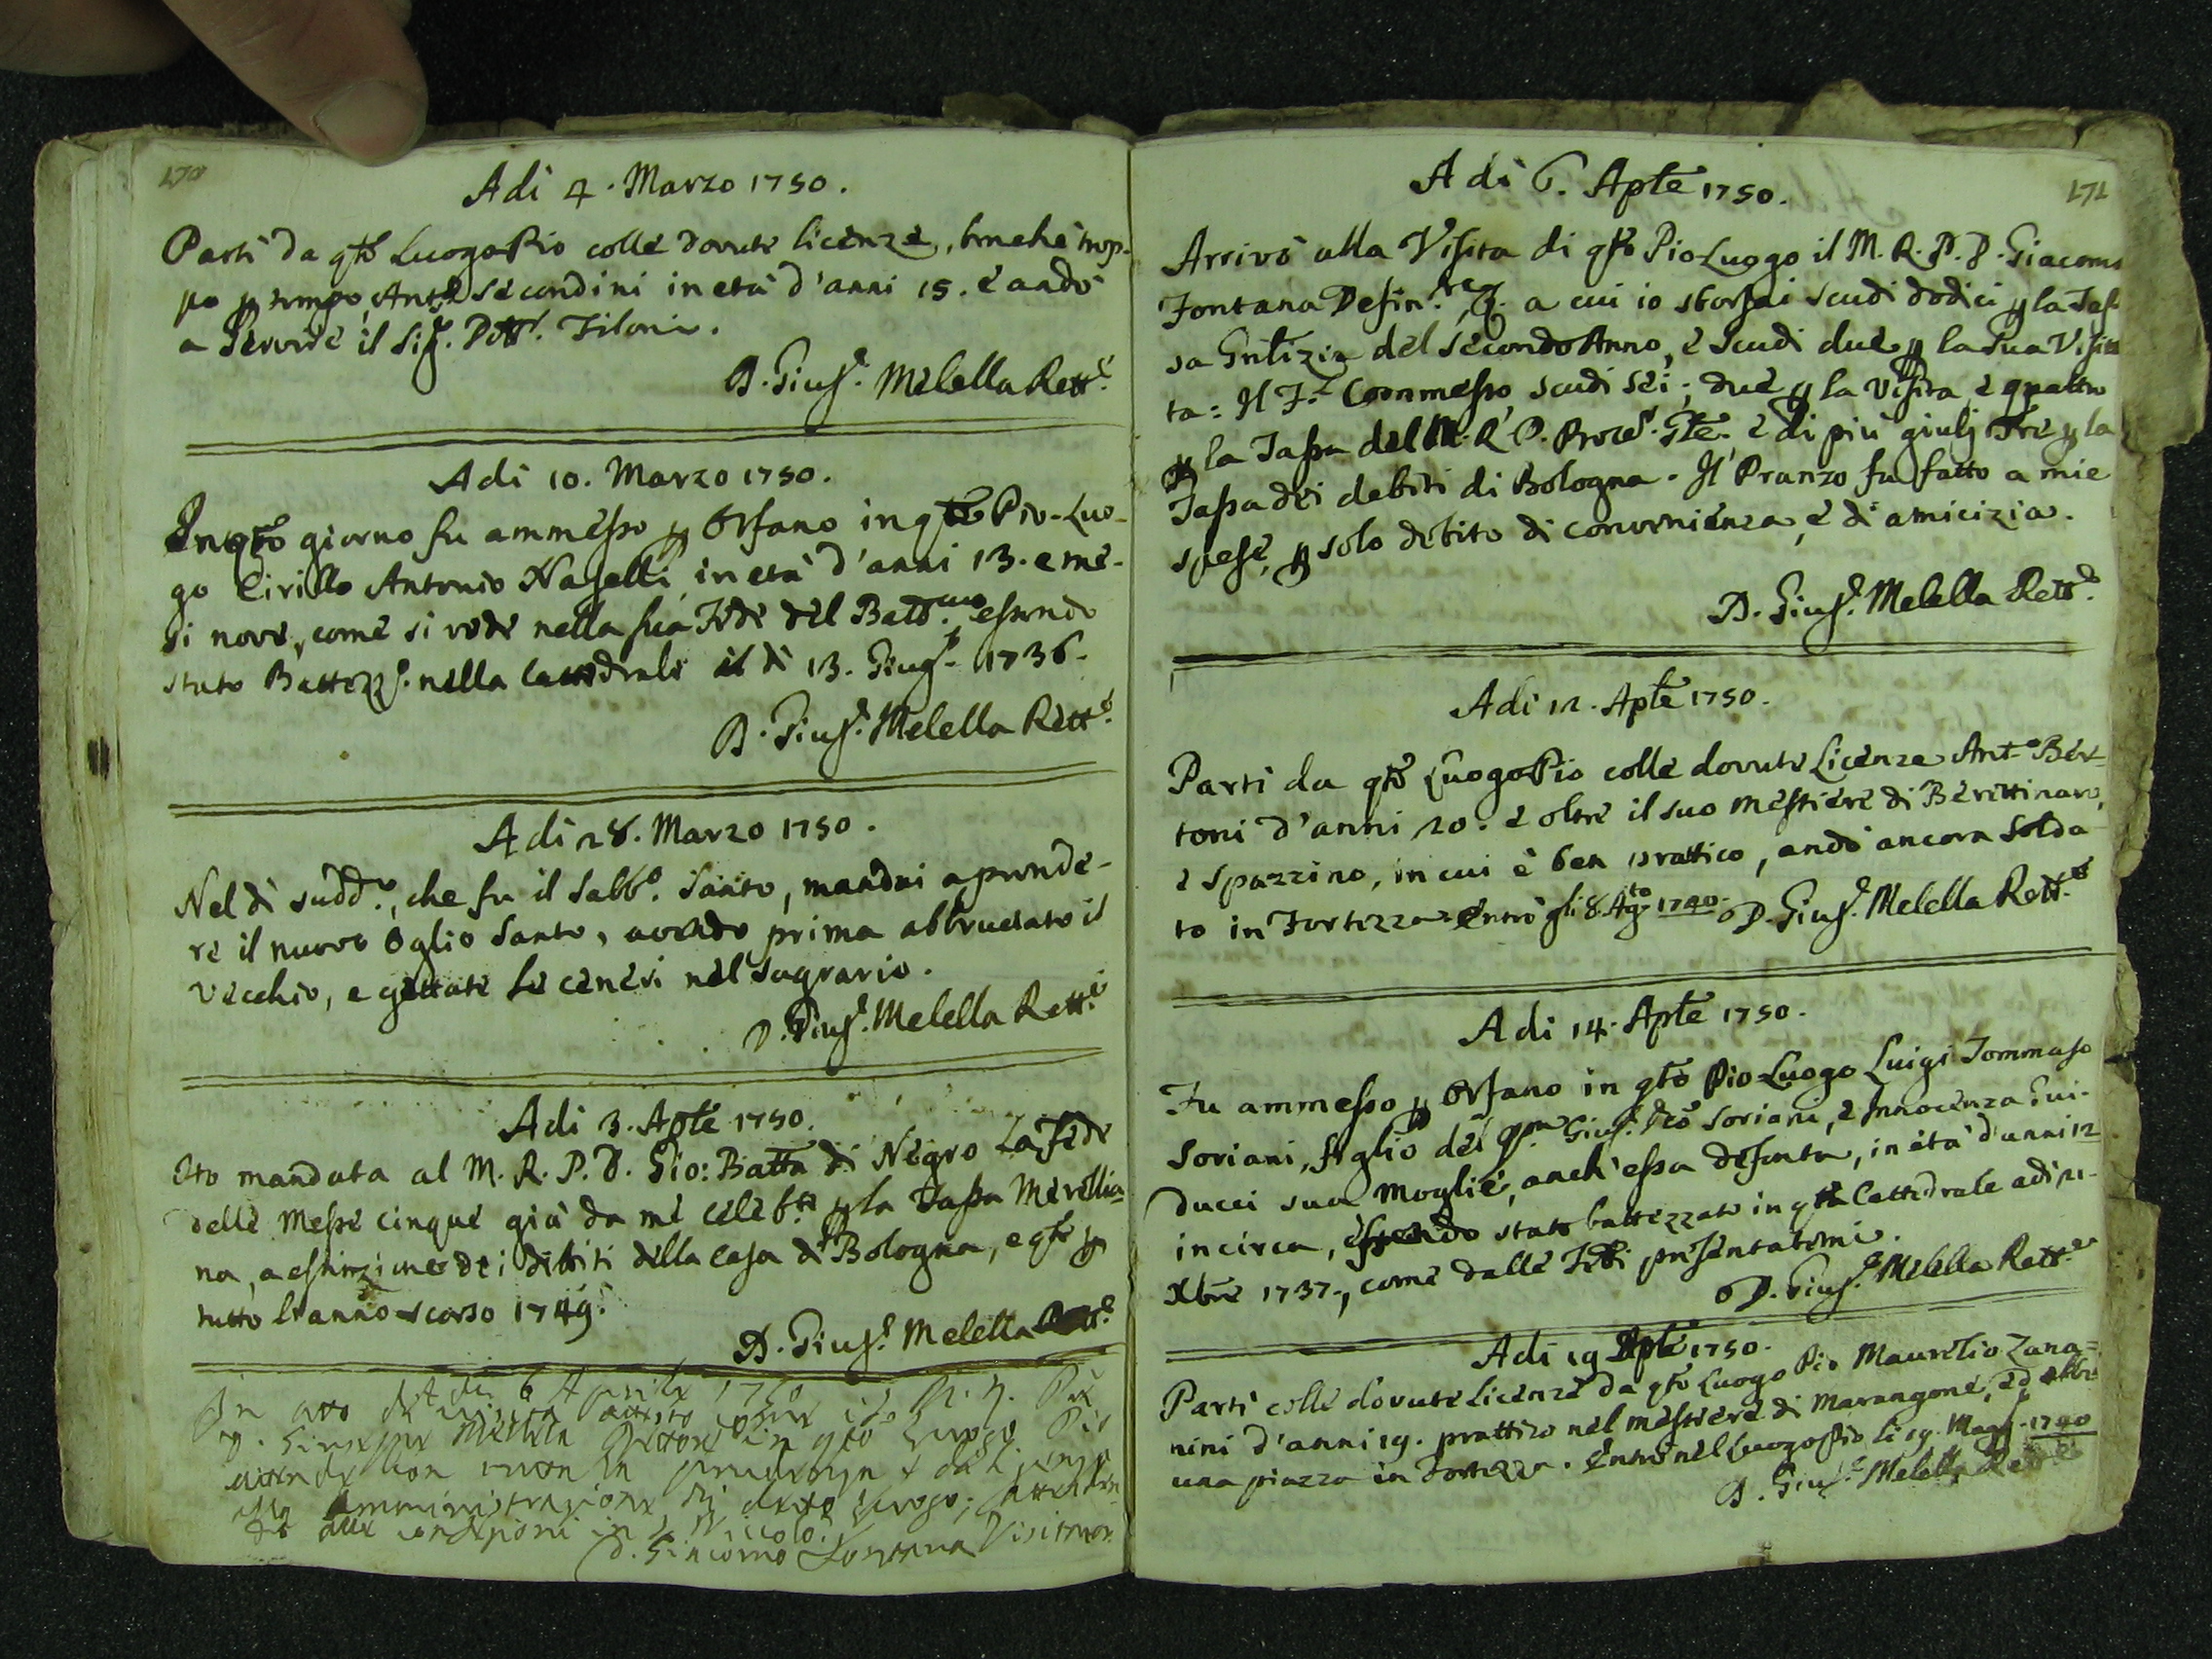 170
Adi 4. Marzo 1750.
Partì da qto Luogo Pio colle dovute licenze, benchè trop-
po per tempo, Anto Secondini in età d'anni 15. e andò
a servire il Sigr. Dottr. Filoni.
D. Giuse. Melella Rette.
Adi 10. Marzo 1750.
In qto giorno fu ammesso per Orfano in qto Pio-Luo-
go Cirillo Antonio Naselli in età d'anni 13. e me-
si nove, come si vede nella sua Fede del Battmo essendo
stato Battezzo. nella Cattedrale il dì 13. Giugo. 1736.
D. Giuse. Melella Rette.
Adi 28. Marzo 1750.
Nel dì suddo., che fu il Sabbo. Santo, mandai a prende-
re il nuovo Oglio Santo, avendo prima abbruciato il
vecchio, e gettate le ceneri nel sagrario.
D. Giuse. Melella Rette.
Adi 3. Aple 1750.
Ho mandata al M. R. P. D. Gio: Batta di Negro La Fede
delle Messe cinque già da me celebte per la Tassa Merellia-
na, a estinzione dei debiti della Casa di Bologna, e qto per
tutto l'anno scorso 1749.
D. Giuse. Melella Rette.
In atto di visita 6 Aprile 1750
D. Giuseppe Melella Rettore in qto Luogo Pio
con prudenza
amministrazione di detto Luogo;
D. Giacomo Fontana Visitator.
171
Adi 6. Aple 1750.
Arrivò alla Visita di qto Pio Luogo il M. R. P. D. Giacomo
Fontana Definre, a cui io sborsai scudi dodici per la Tas-
sa Gntlizia del secondo Anno, e scudi due per la sua Visi
ta: Il F. Commesso scudi sei; due per la visita, e quattro
per la Tassa del M. R. P. Procr. Gle. e di più giulj tre per la
Tassa dei debiti di Bologna. Il Pranzo fu fatto a mie
spese, per solo debito di convenienza, e di amicizia.
D. Giuse. Melella Rette.
Adi 12. Aple 1750.
Partì da qto Luogo Pio colle dovute Licenze Anto Ber-
toni d'anni 20. e oltre il suo mestiere di Berettinaro,
e spazzino, in cui è ben prattico, andò ancora Solda-
to in Fortezza. Entrò gli 8. Agto 1740. D. Giuse. Melella Rette.
Adi 14. Aple 1750.
Fu ammesso per Orfano in qto Pio Luogo Luigi Tommaso
Soriani, figlio del qm Giuse. Soriani, e Innocenza Gui-
ducci sua Moglie, anch'essa defonta, in età d'anni 12
in circa, essendo stato battezzato in qta Cattedrale adi 21.
Xbre 1737., come dalle Fedi presentatemi.
D. Giuse. Melella Rette.
Adi 19 Aple 1750.
Partì colle dovute licenze da qto Luogo Pio Maurelio Zana-
nini d'anni 19. prattico nel mestiere di Marangone, ed ebbe
una piazza in Fortezza. Entrò nel Luogo Pio li 19. Magg. 1740
D. Giuse. Melella Rette.